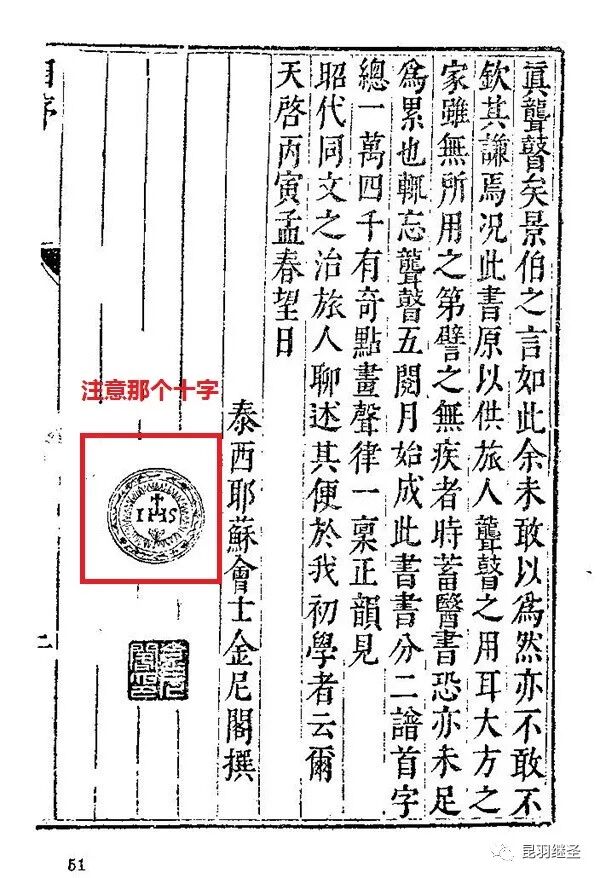 真聾瞽矣景伯之言如此余未敢以為然亦不敢不
欽其謙焉况此書原以供旅人聾瞽之用耳大方之
家雖無所用之第譬之無疾者時蓄醫書恐亦未足
為累也輒忘聾瞽五閱月始成此書書分二譜首字
總一萬四千有奇點畫聲律一稟正韻見
昭代同文之治旅人聊述其便於我初學者云爾
天啓丙寅孟春望日
泰西耶蘇會士金尼閣撰
注意那个十字
IHS
自序
二
51
昆羽继圣